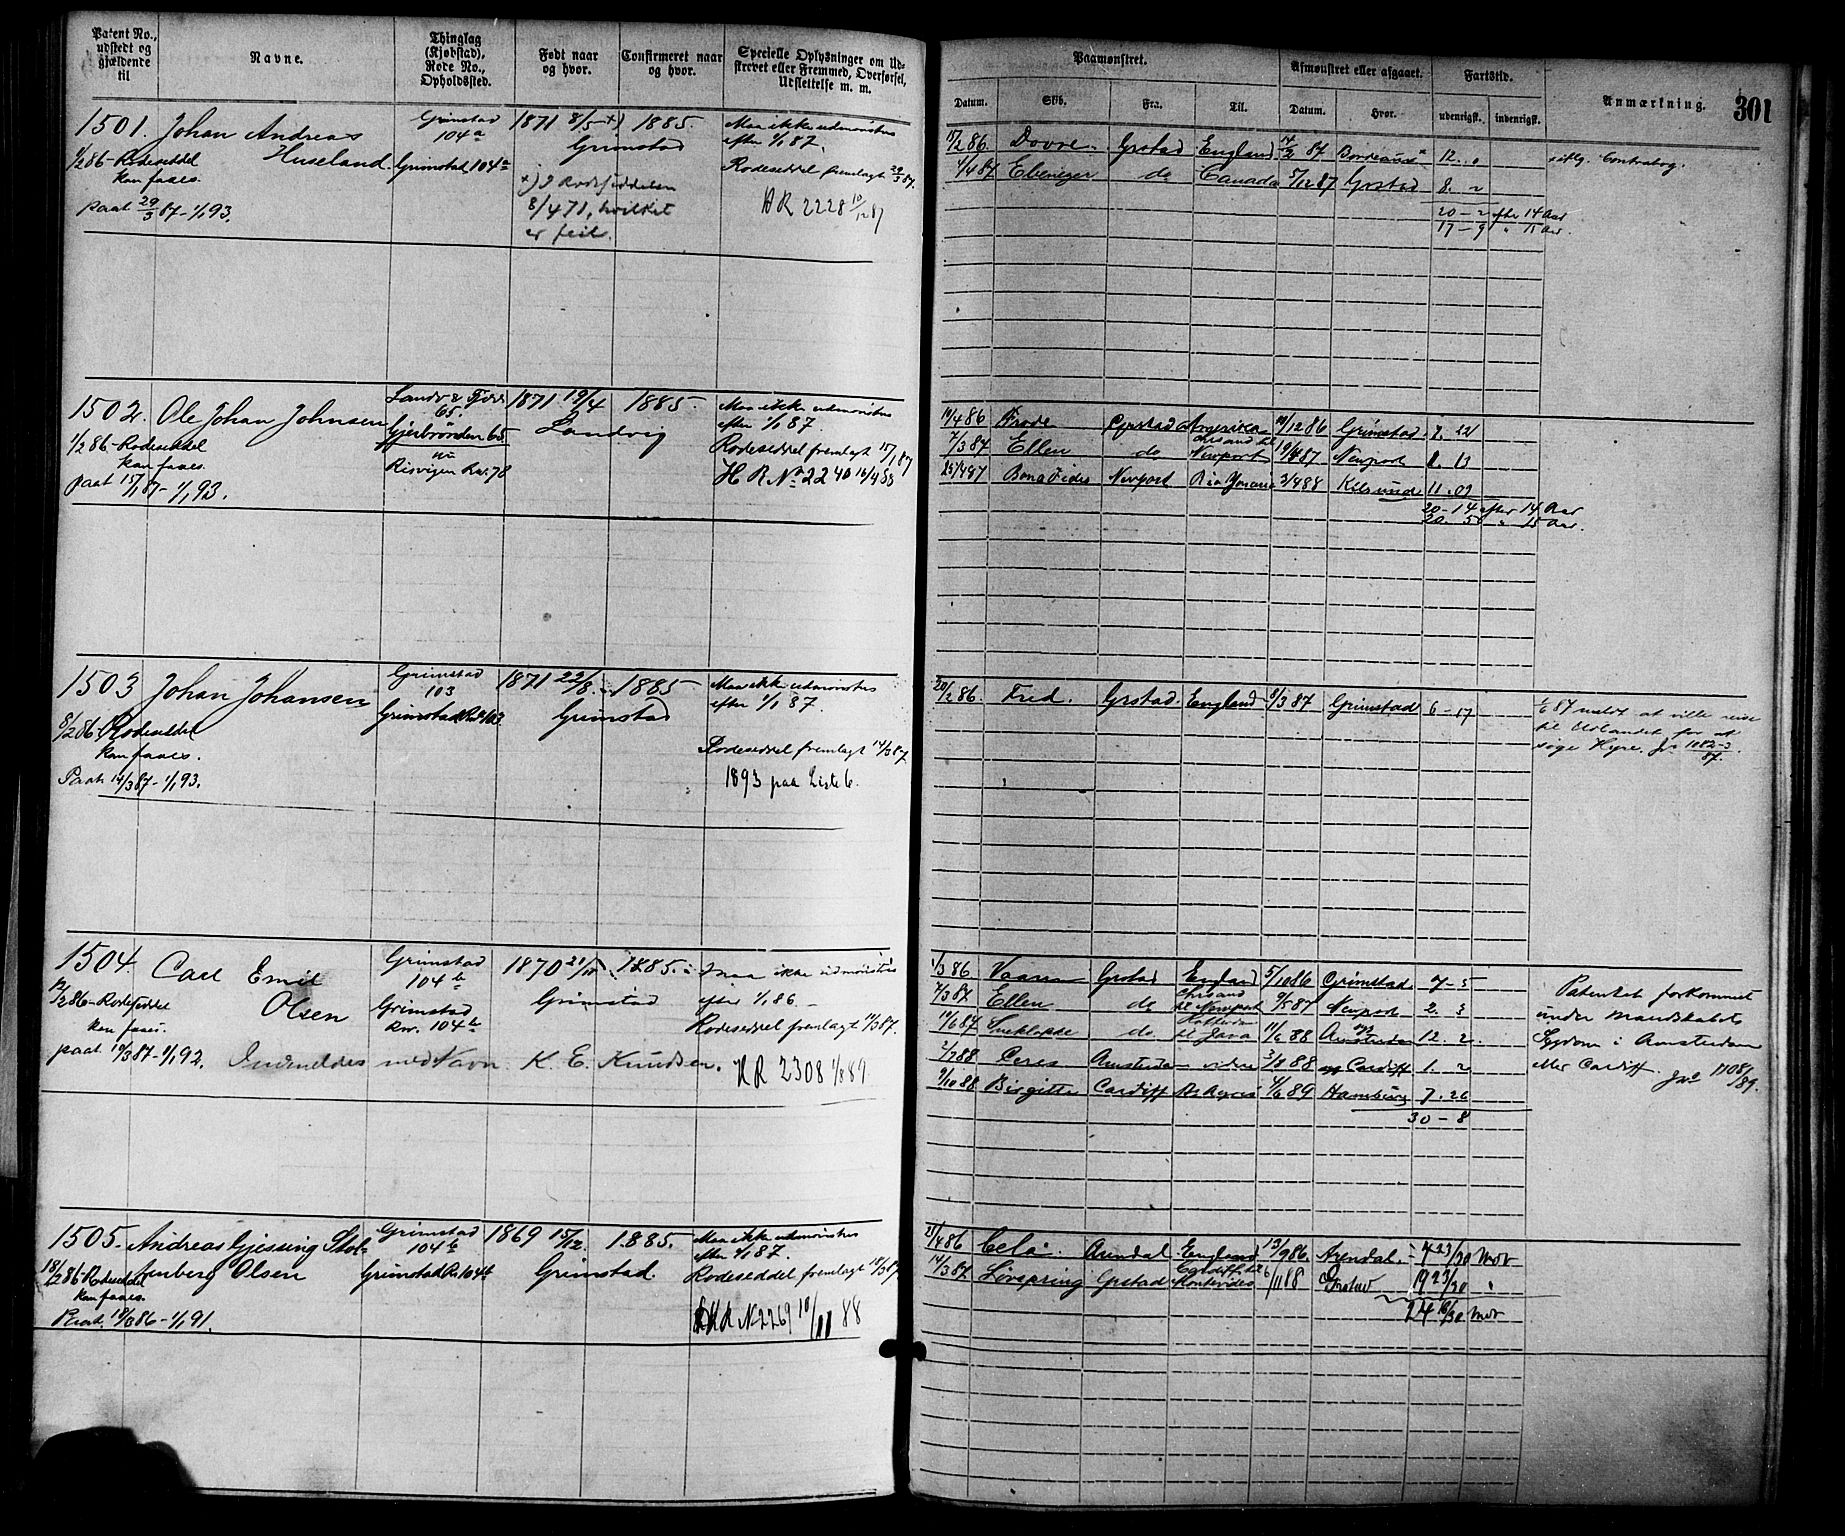 Patent No., udstedt og gjældende til
Navne.
Thinglag (Kjøbstad), Rode No., Opholdssted.
Født naar og hvor.
Confirmeret naar og hvor.
Specielle Oplysninger om Udskrevet eller Fremmed, Overførsel, Udslettelse m. m.
Paamønstret.
Afmønstret eller afgaaet.
Fartstid.
Anmærkning.
301
Datum.
Skib.
Fra.
Til.
Datum.
Hvor.
udenrigsk.
indenrigsk.
1501. Johan Andreas Huseland.
1/2 86 - Rodeseddel kan faaes.
paat 29/3 87 - 1/1 93.
Grimstad 104a
Grimstad 104a
1871 8/5 x) Grimstad
x) I Rodeseddelen 8/4 71, hvilket er feil.
1885.
Maa ikke udmønstres efter 1/1 87.
Rodeseddel fremlagt 29/3 87.
HR 2228 10/12 87
15/2 86. Dovre. Grstad England 14/2 87 Bordeaux 12. 0
4/4 87 Ebeneger do Canada 5/12 87 Grstad 8. 2
20 - 2 efter 14 Aar
17 - 9 " 15 Aar.
1502. Ole Johan Johnsen
1/2 86 - Rodeseddel kan faaes.
paat 15/1 87 - 1/1 93.
65.
Gjerbrønden 65
nu
Risvigen Rw. 78
1871 19/4 Landvig
1885.
Maa ikke udmønstres efter 1/1 87.
Rodeseddel fremlagt 15/1 87
H R No 2240 16/4 88
10/4 86 Frode Grstad America 10/12 86 Grimstad 7. 22
7/3 87 Ellen do Chrsand til Newport 19/4 87 Newport 1. 13
25/4 87 Bona Fides Newport Rio 3/4 88 Kilsund 11. 09
20 - 14 efter 14 Aar
20 5 " 15 Aar.
1503 Johan Johansen
8/2 86. Rodeseddel kan faaes.
Paat 14/3 87 - 1/1 93.
Grimstad 103
Grimstad Rw 103
1871 22/8. Grimstad
1885
Maa ikke udmønstres efter 1/1 87.
Rodeseddel fremlagt 14/3 87.
1893 paa Liste 6.
20/2 86. Fred. Grstad. England 8/3 87 Grimstad 6 - 17
87 meldt at ville reise til Udlandet for at søge Hyre. Jr 1082-3/87.
1504. Carl Emil Olsen
12/2 86 - Rodeseddel kan faaes.
paat 10/3 87 - 1/1 92.
Indmeldes med Navn K. E. Knudsen.
Grimstad 104b
Grimstad Rw. 104b
1870 Grimstad
1885.
Maa ikke udmønstres efter 1/1 86 -
Rodeseddel fremlagt 10/3 87.
HR 2308 1/8 89
1/3 86 Vaaren Grstad England 5/10 86 Grimstad 7 - 5
7/3 87 Ellen do Chrsand til Newport 9/5 87 Newport 2. 3
10/6 87 do Rotterdam til Java 11/6 88 Amsterdam 12. 2.
2/7 88 Ceres Amsterdam videre 3/8 88 Cardiff 1. 2
9/10 88 Birgitte Cardiff B. Ayres 4/6 89 Hamburg 7. 26
30 - 8
Patentet forkommet under Mandskabets Sygdom i Amsterdam eller Cardiff. Jr 1108/89.
1505. Andreas Gjessing Stoltenberg Olsen
18/2 86 - Rodeseddel kan faaes.
Paat. 18/3 86 - 1/1 91.
Grimstad 104b
Grimstad Rw 104b
1869 15/12. Grimstad.
1885.
Maa ikke udmønstres efter 1/1 87.
Rodeseddel fremlagt 18/3 87
HR N 2269 10/11 88
21/4 86 Celö. Arendal England 13/9 86. Arendal. 4 23/30 Mdr
14/3 87 Løvspring Grstad Cardiff til Montevideo 6/11 88 Grstad 19 23/30 "
24 16/30 Mdr